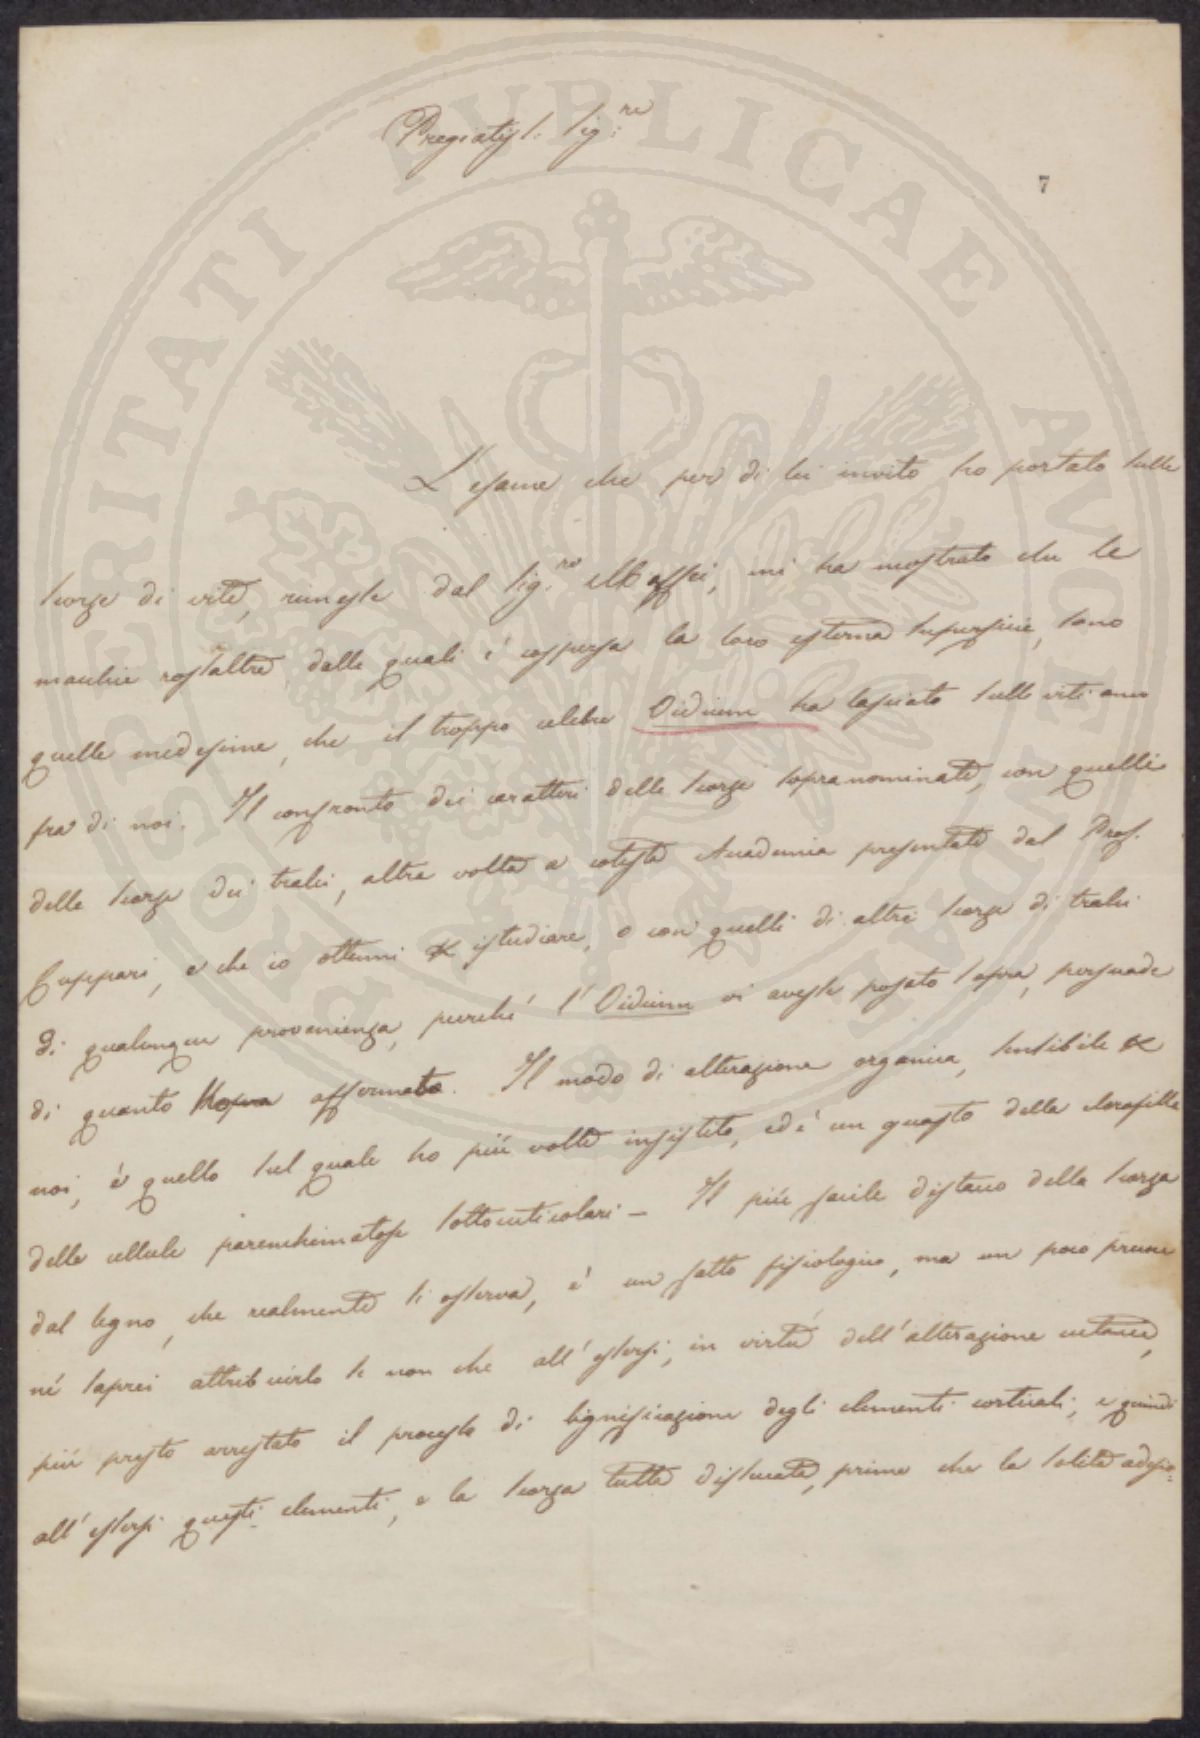 Pregiatiss: Sig:re
7
L'esame che per di lei invito ho portato sulle
scorze di vite, rimesse dal Sig.re Maffei, mi ha mostrato che le
macchie rossastre, dalle quali è cospersa la loro esterna superficie, sono
quelle medesime, che il troppo celebre Oidium ha lasciato sulle viti anco
fra di noi. Il confronto dei caratteri delle scorze sopranominate, con quelli
delle scorze dei tralci, altra volta a codesta Accademia presentate dal Prof.
Cuppari, e che io ottenni istudiare, e con quelli di altre scorze di tralci
di qualunque provenienza, purché l'Oidium vi avesse posato sopra, persuade
di quanto affermato. Il modo di alterazione organica, sensibile
noi, è quello sul quale ho più volte insistito, ed è un guasto della clorofilla
delle cellule parenchimatose sottocuticolari - Il più facile distacco della scorza
dal legno, che realmente si osserva, è un fatto fisiologico, ma un poco precoce
né saprei attribuirlo se non che all'essersi, in virtù dell'alterazione cutanea,
più presto arrestato il processo di lignificazione degli elementi corticali, e quindi
all'essersi questi elementi, e la scorza tutta disseccata, prima che la solita adesio=